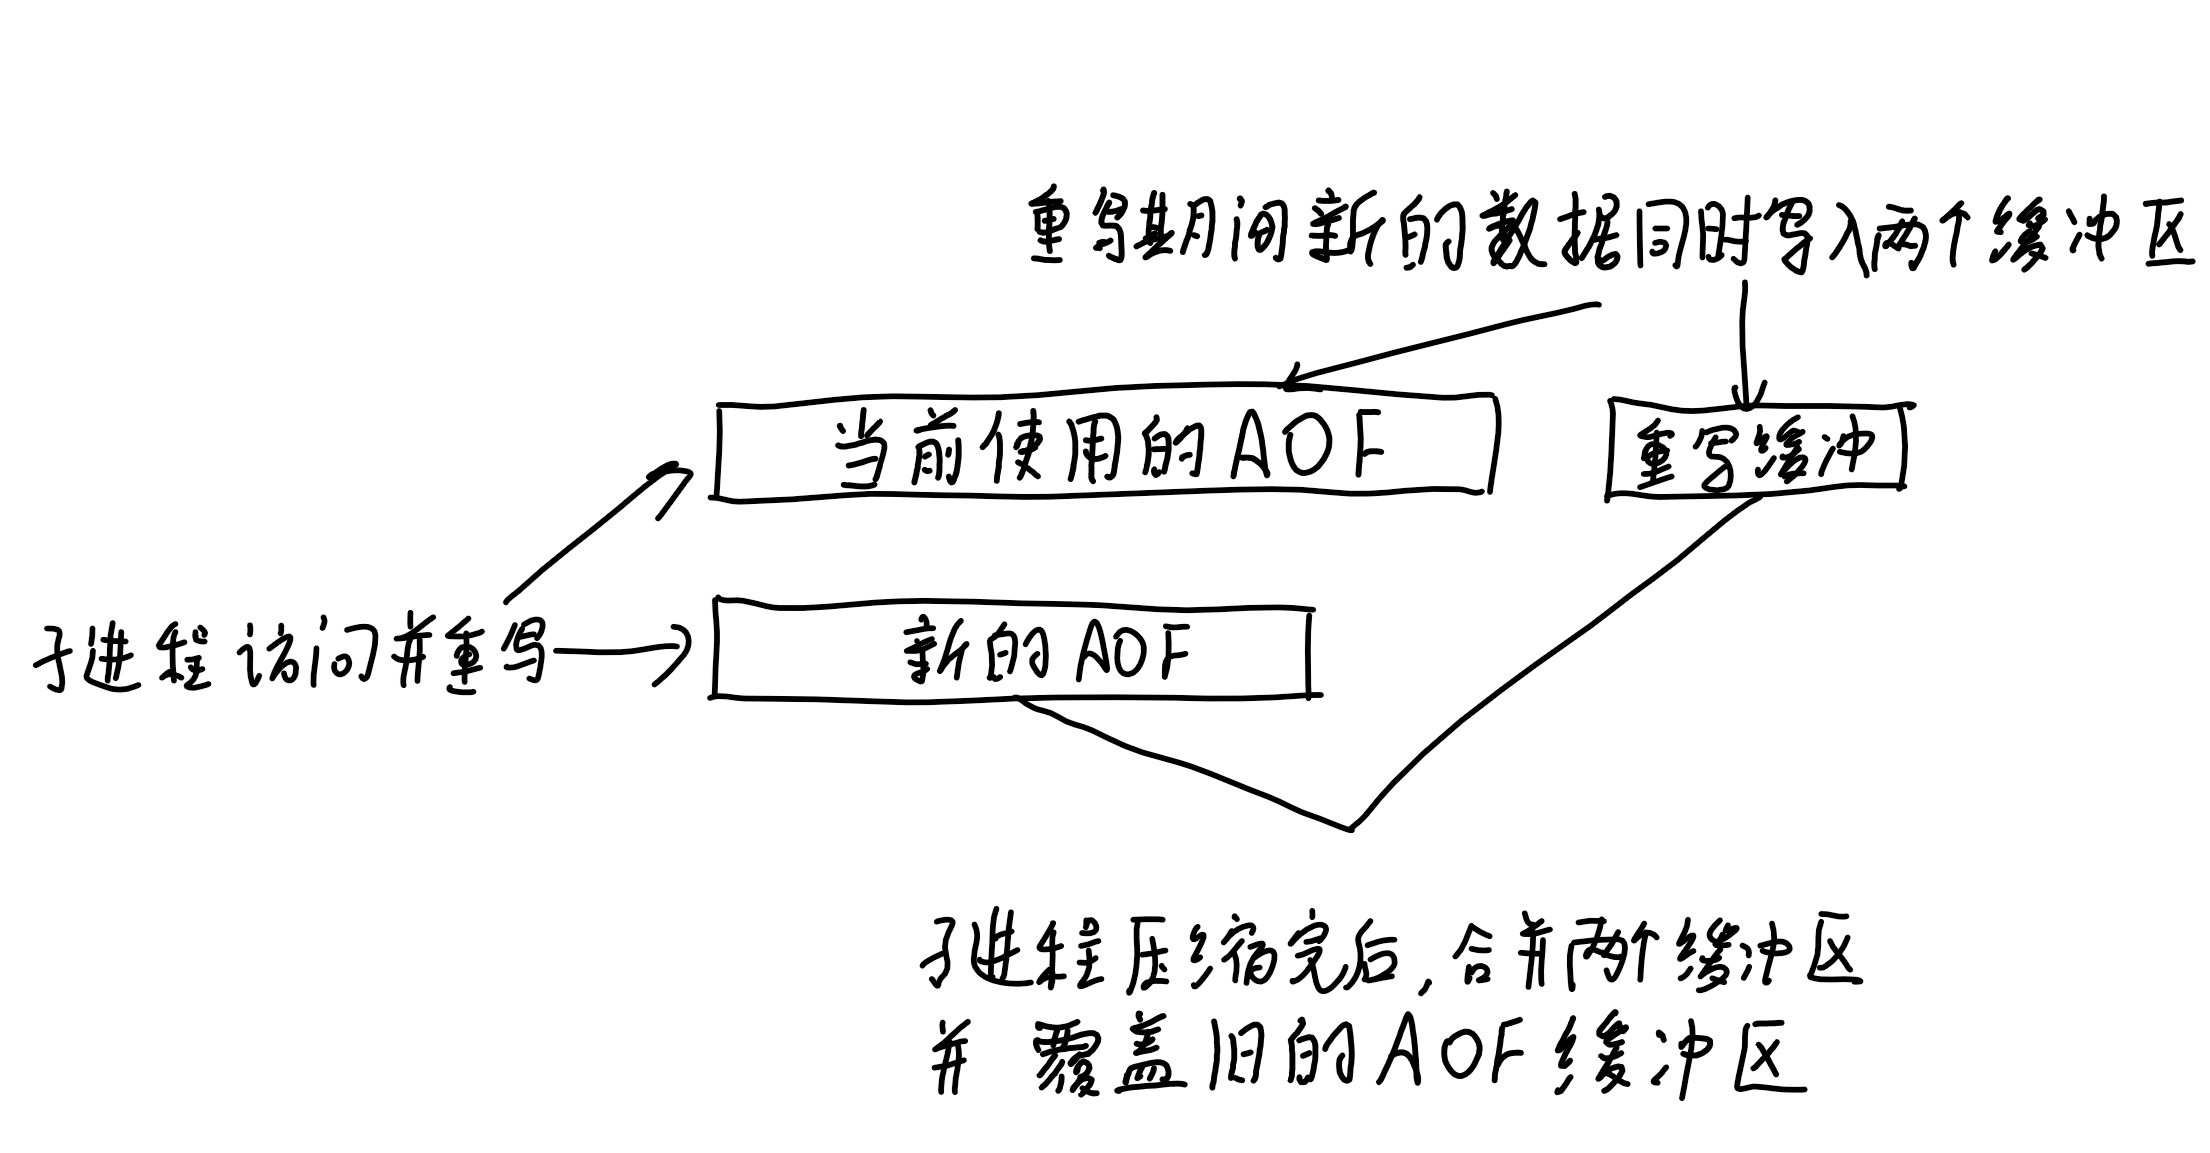 重写期间新的数据同时写入两个缓冲区
当前使用的AOF
重写缓冲
子进程访问并重写
新的AOF
子进程压缩完后,合并两个缓冲区
并覆盖旧的AOF缓冲区